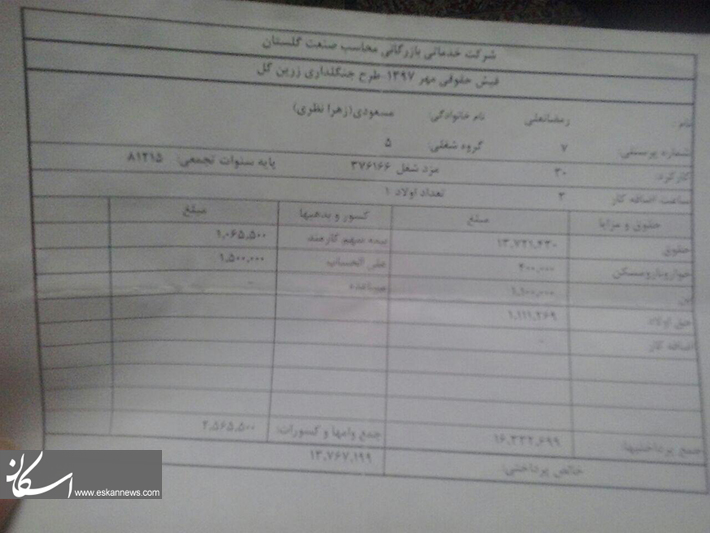 شرکت خدماتی بازرگانی محاسب صنعت گلستان
فیش حقوقی مهر ۱۳۹۷ طرح جنگلداری زرین گل
نام: رمضانعلی نام خانوادگی: مسعودی(زهرا نظری)
شماره پرسنلی: ۷ گروه شغلی: ۵
کارکرد: ۳۰ مزد شغل ۳۷۶۱۶۶ پایه سنوات تجمعی: ۸۱۲۱۵
ساعت اضافه کار ۳ تعداد اولاد ۱
حقوق و مزایا مبلغ کسور و بدهیها مبلغ
حقوق ۱۳,۷۲۱,۴۳۰ بیمه سهم کارمند ۱,۰۶۵,۵۰۰
خواروبارومسکن ۴۰۰,۰۰۰ علی الحساب ۱,۵۰۰,۰۰۰
بن ۱,۱۰۰,۰۰۰ مساعده -
حق اولاد ۱,۱۱۱,۲۶۹
اضافه کار -
جمع پرداختیها: ۱۶,۳۳۲,۶۹۹ جمع وامها و کسورات: ۲,۵۶۵,۵۰۰
خالص پرداختی: ۱۳,۷۶۷,۱۹۹
اسکان www.eskannews.com